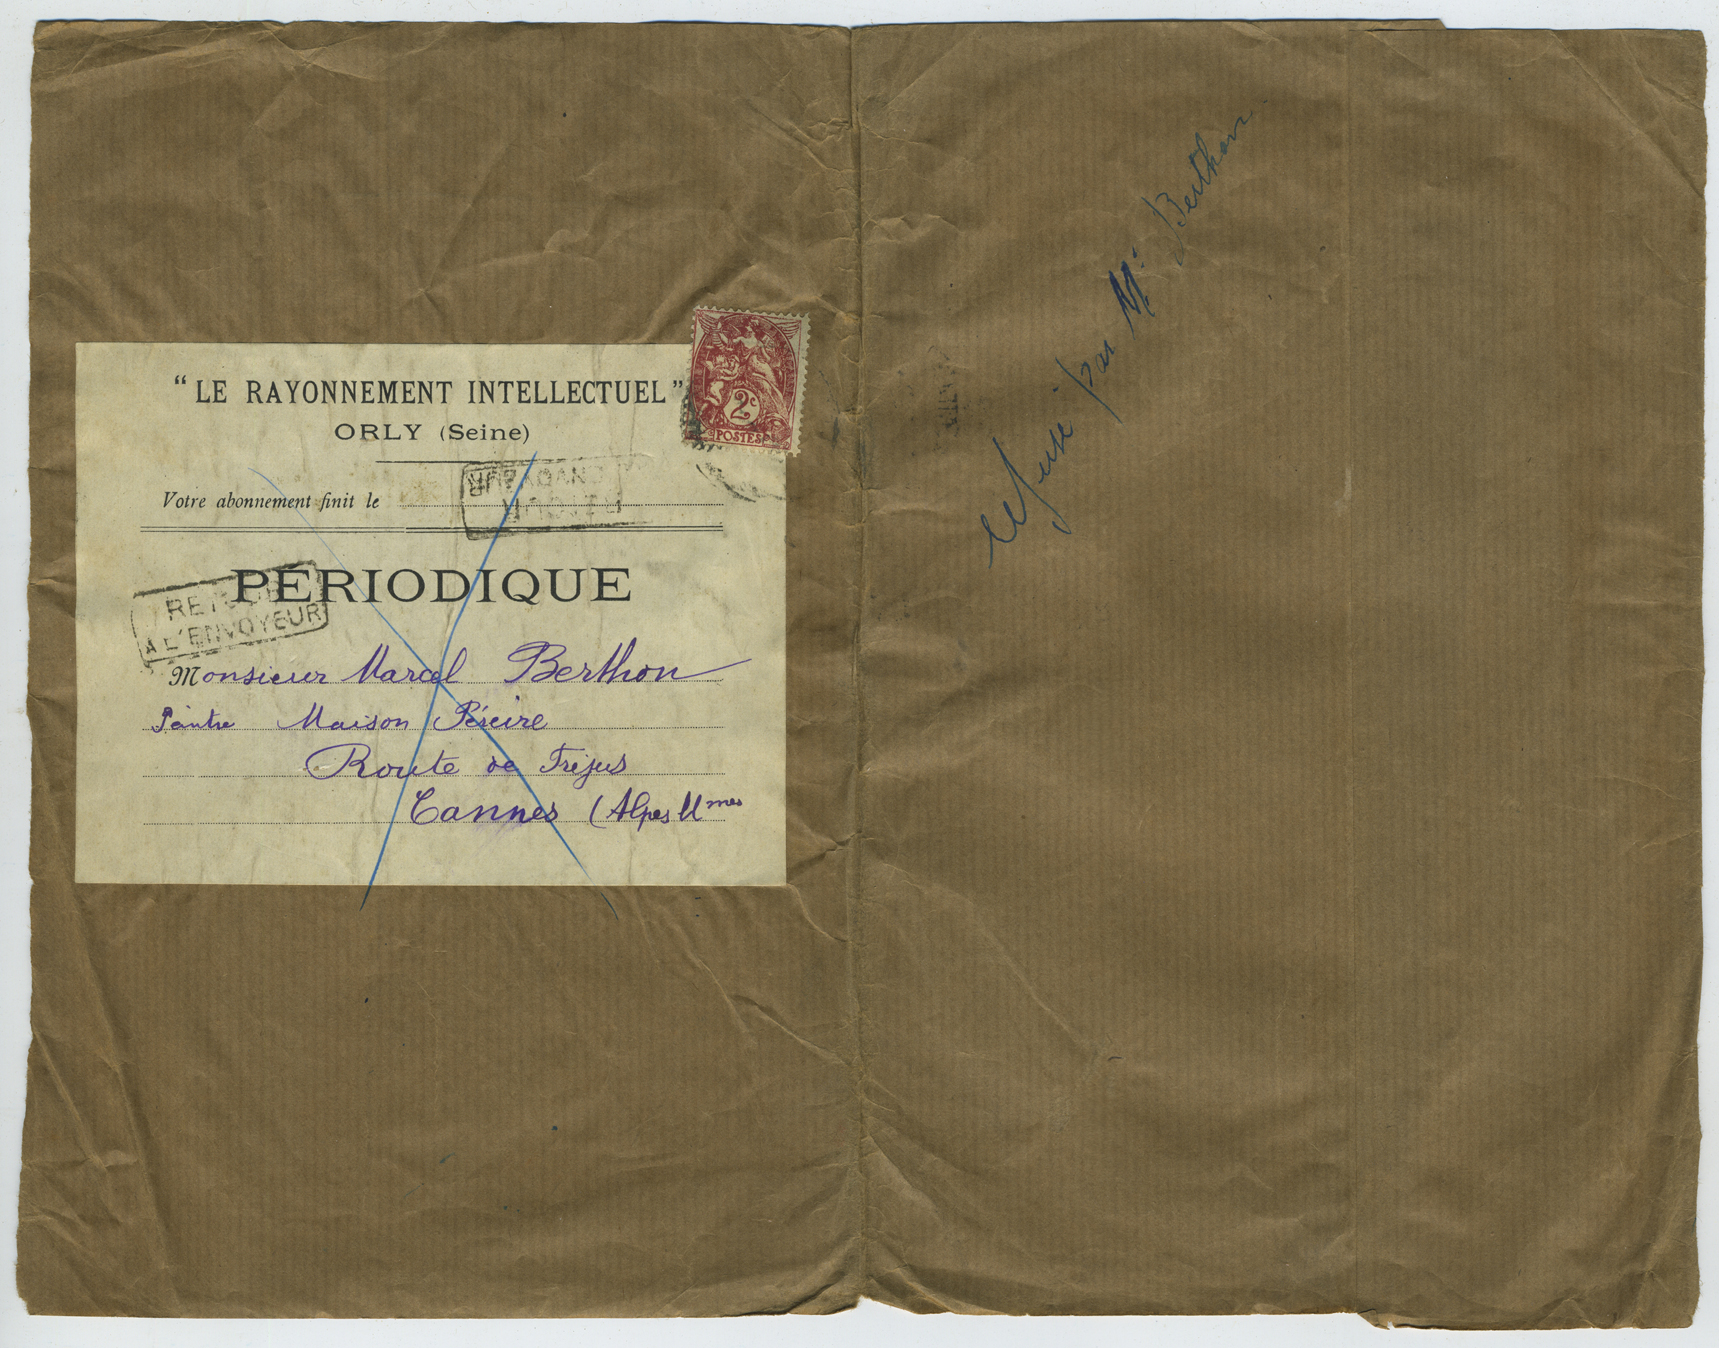 "LE RAYONNEMENT INTELLECTUEL"
ORLY (Seine)
2c
POSTES
Votre abonnement finit le
RETOUR
A L'ENVOYEUR
PÉRIODIQUE
RETOUR
A L'ENVOYEUR
Monsieur Marcel Berthon
Peintre Maison Péreire
Route de Fréjus
Cannes (Alpes Mmes
refusé par Mr Berthon